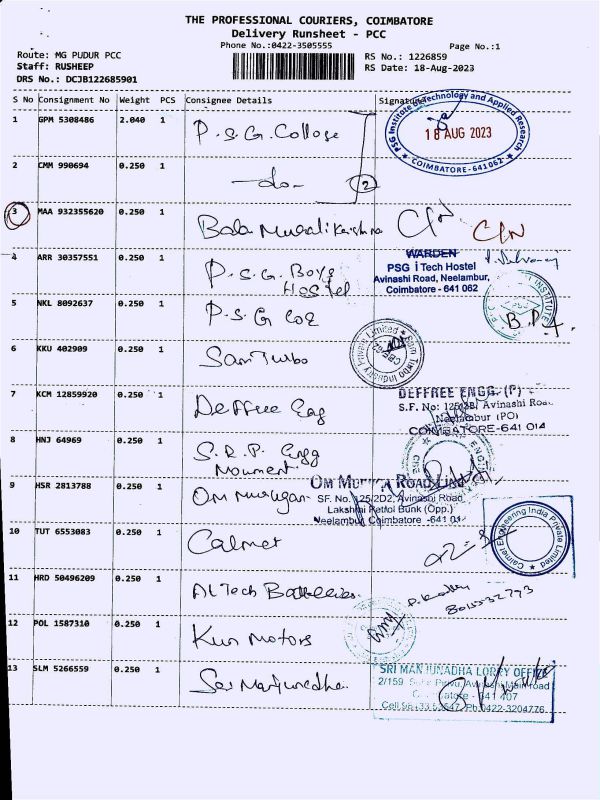 THE PROFESSIONAL COURIERS, COIMBATORE
Delivery Runsheet - PCC
Phone No.:0422-3505555
Page No.:1
Route: MG PUDUR PCC
RS No.: 1226859
Staff: RUSHEEP
RS Date: 18-Aug-2023
DRS No.: DCJB122685901
S No Consignment No Weight PCS Consignee Details Signature
1 GPM 5308486 2.040 1 P.S.G. College
PSG Institute of Technology and Applied Research
18 AUG 2023
COIMBATORE-641062
2 CMM 990694 0.250 1 -do- 2
3 MAA 932355620 0.250 1 Bala Muralikrishna C/N C/N
4 ARR 30357551 0.250 1 P.S.G. Boys
Hostel
WARDEN
PSG iTech Hostel
Avinashi Road, Neelambur,
Coimbatore - 641 062
5 NKL 8092637 0.250 1 P.S.G COE
6 KKU 402909 0.250 1 Sam Turbo
Sam Turbo Industry Private Limited
7 KCM 12859920 0.250 1 Deffree Eng
DEFFREE ENGG. (P)
S.F. No: Avinashi Road
Neelambur (PO)
COIMBATORE-641 014
8 HNJ 64969 0.250 1 S.R.P. Engg
9 HSR 2813788 0.250 1 Om Murugan
SF. No. 125/2D2, Avinashi Road
Lakshmi Petrol Bunk (Opp.)
Neelambur Coimbatore
10 TUT 6553083 0.250 1 Calmet
Calmet Engineering India Private Limited
11 HRD 50496209 0.250 1 Al Tech Batteries
12 POL 1587310 0.250 1 Kun Motors
13 SLM 5266559 0.250 1 Sri Manjunadha
SRI MANJUNADHA LORRY OFFICE
2/159 Avinashi Main road
Coimbatore - 641 407
Ph.0422-3204776